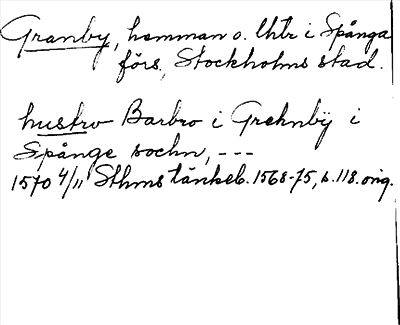 Granby, hemman o. lhtr i Spånga
förs, Stockholms stad.
hustro Barbro i Grehnbÿ i
Spånge sochn, ---
1570 4/11 Sthms tänkeb. 1568-75, s. 118. orig.